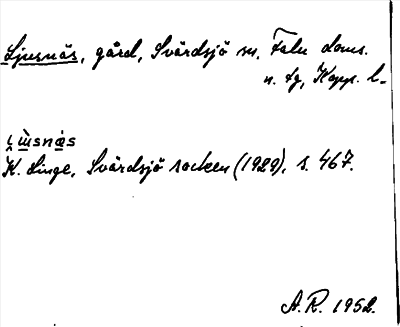 Ljusnäs, gård, Svärdsjö sn, Falu doms.
n. tg, Kopp. l.
K. Linge, Svärdsjö socken (1929), s. 467.
A.R. 1952.